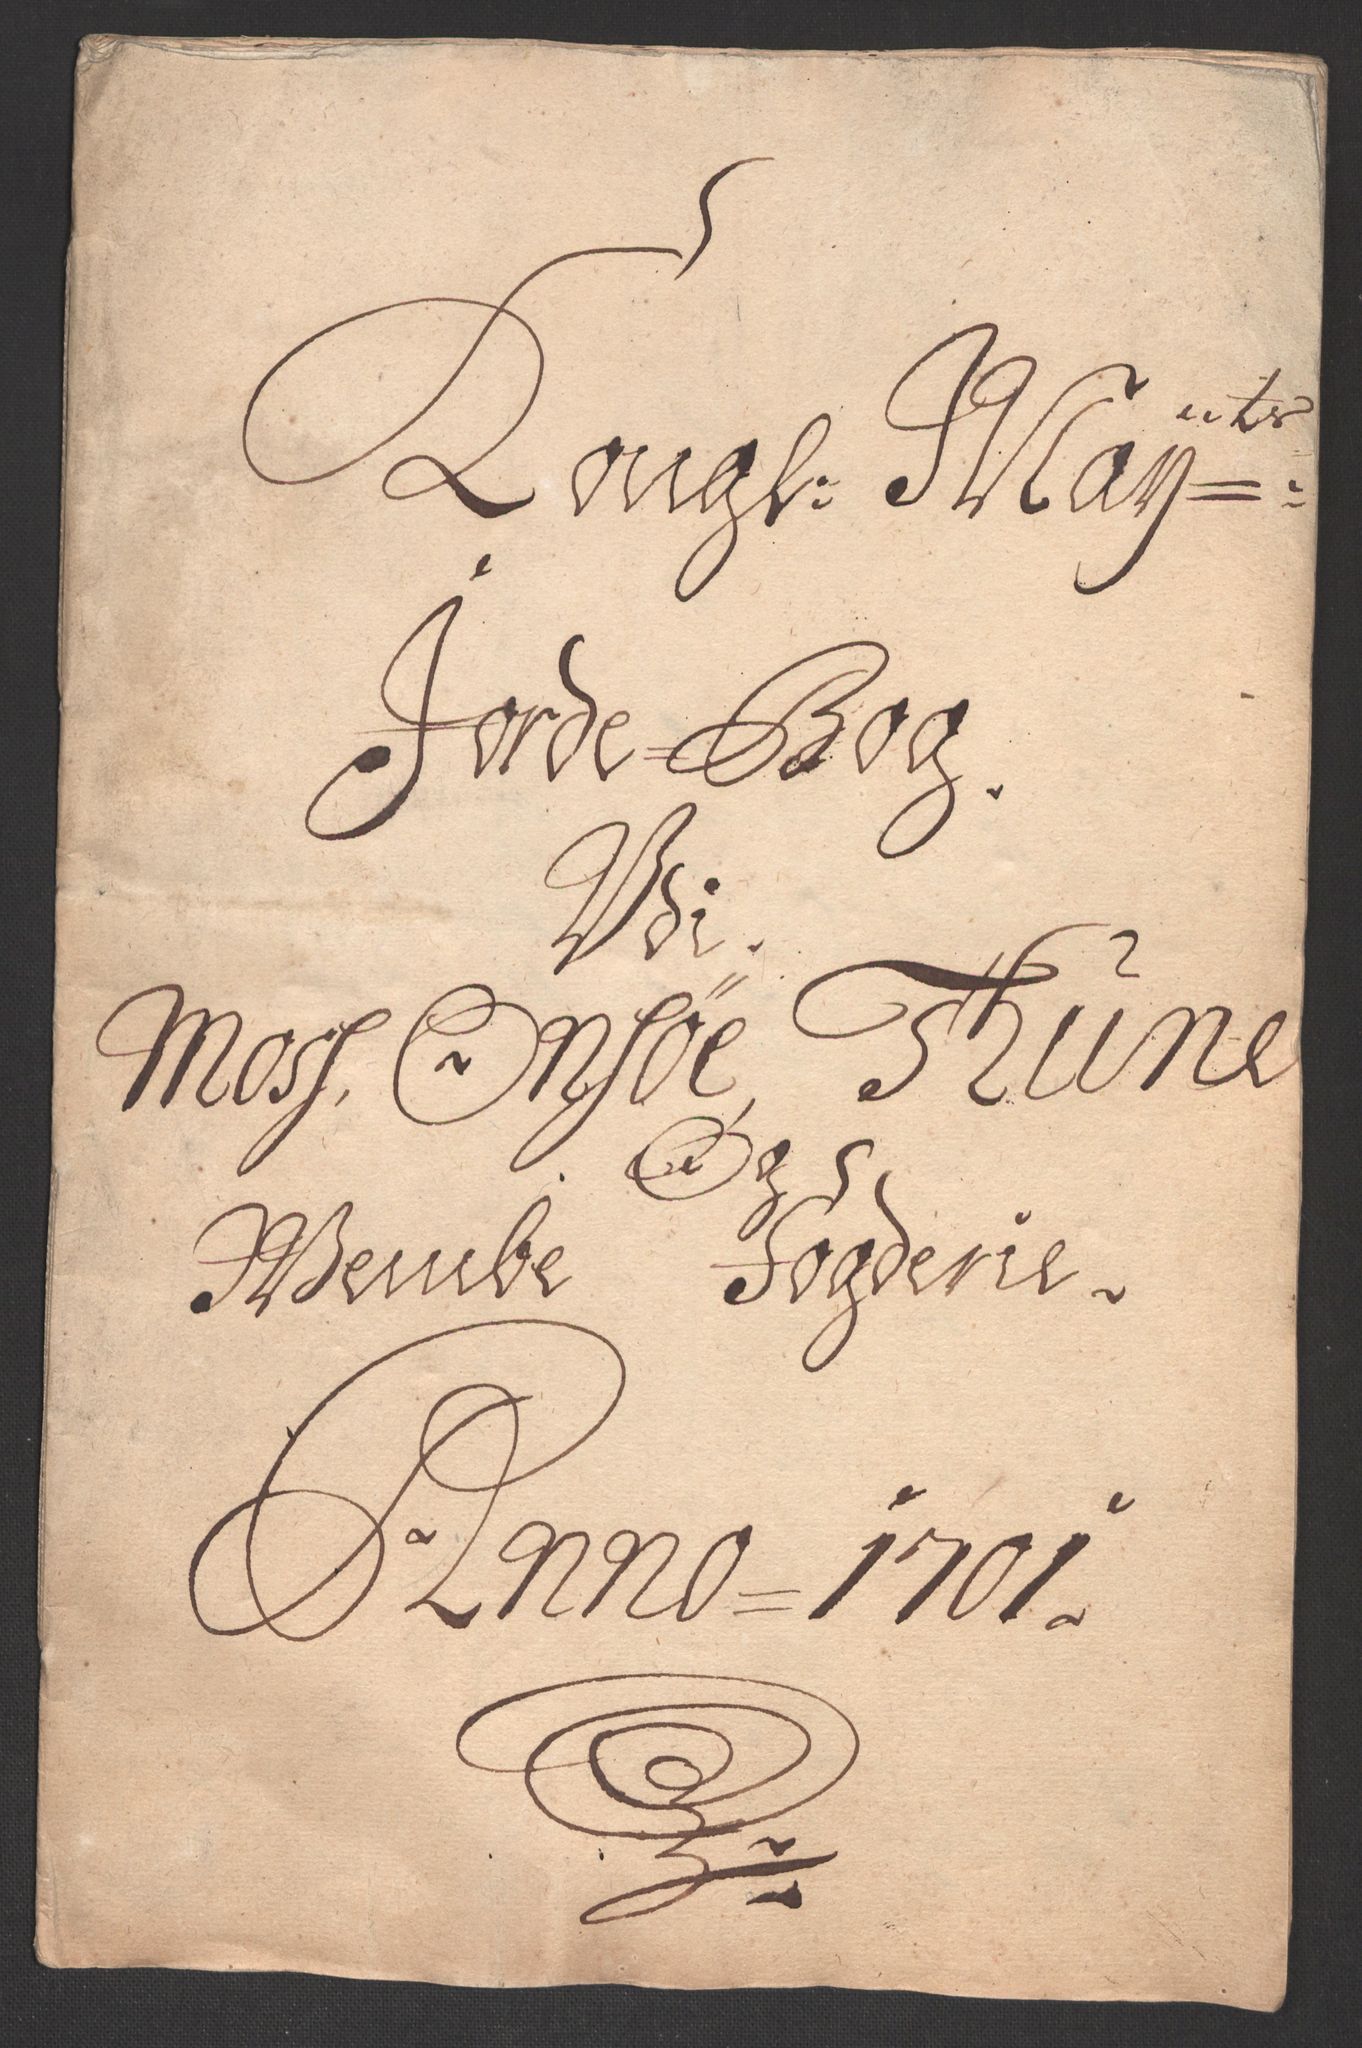 Kongl: Maÿ=ts:
Jorde=Bog.
Vdi.
Moss, Onsöe, Thüne
Og
Wembe Fogderie.
Anno=1701.